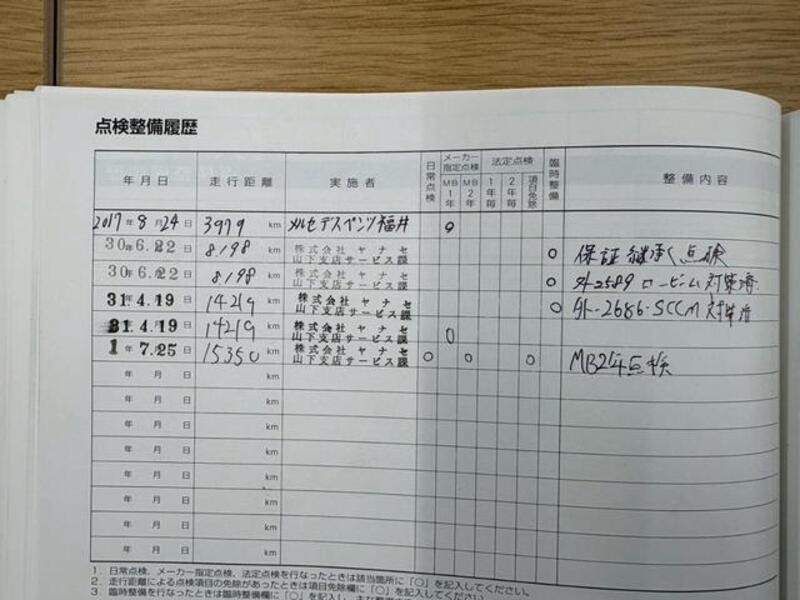 点検整備履歴
年月日 走行距離 実施者 日常点検 メーカー指定点検 MB1年 MB2年 法定点検 1年毎 2年毎 項目免除 臨時整備 整備内容
2017年8月24日 3979km メルセデスベンツ福井 ○
30年6.22日 8198km 株式会社ヤナセ 山下支店サービス課 ○ 保証継承く点検
30年6.22日 8198km 株式会社ヤナセ 山下支店サービス課 ○ 外-2589 ロービーム対策済
31.4.19 14219km 株式会社ヤナセ 山下支店サービス課 ○ 外-2686-SCCM対策済
31.4.19 14219km 株式会社ヤナセ 山下支店サービス課 ○
1年7.25 15350km 株式会社ヤナセ 山下支店サービス課 ○ ○ ○ MB2年点検
年 月 日 km
年 月 日 km
年 月 日 km
年 月 日 km
年 月 日 km
年 月 日 km
年 月 日 km
1. 日常点検、メーカー指定点検、法定点検を行なったときは該当箇所に「○」を記入してください。
2. 走行距離による点検項目の免除があったときは項目免除欄に「○」を記入してください。
3. 臨時整備を行なったときは臨時整備欄に「○」を記入し、